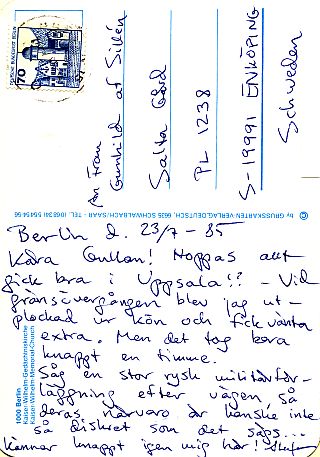 70
DEUTSCHE BUNDESPOST BERLIN
An Frau
Gunhild af Sillén
Salta Gård
PL 1238
S-19991 ENKÖPING
Schweden
© by GRUSSKARTEN-VERLAG, DEUTSCH, 6635 SCHWALBACH/SAAR · TEL. (06834) 5 54 54-56
1000 Berlin
Kaiser-Wilhelm-Gedächtniskirche
Kaiser-Wilhelm-Memorial-Church
Berlin d. 23/7 - 85
Kära Gullan! Hoppas allt
gick bra i Uppsala!! - Vid
gränsövergången blev jag ut-
plockad ur kön och fick vänta
extra. Men det tog bara
knappt en timme.
Såg en stor rysk militärför-
läggning efter vägen, så
deras närvaro är kanske inte
så diskret som det sägs...
Känner knappt igen mig här! Stefan